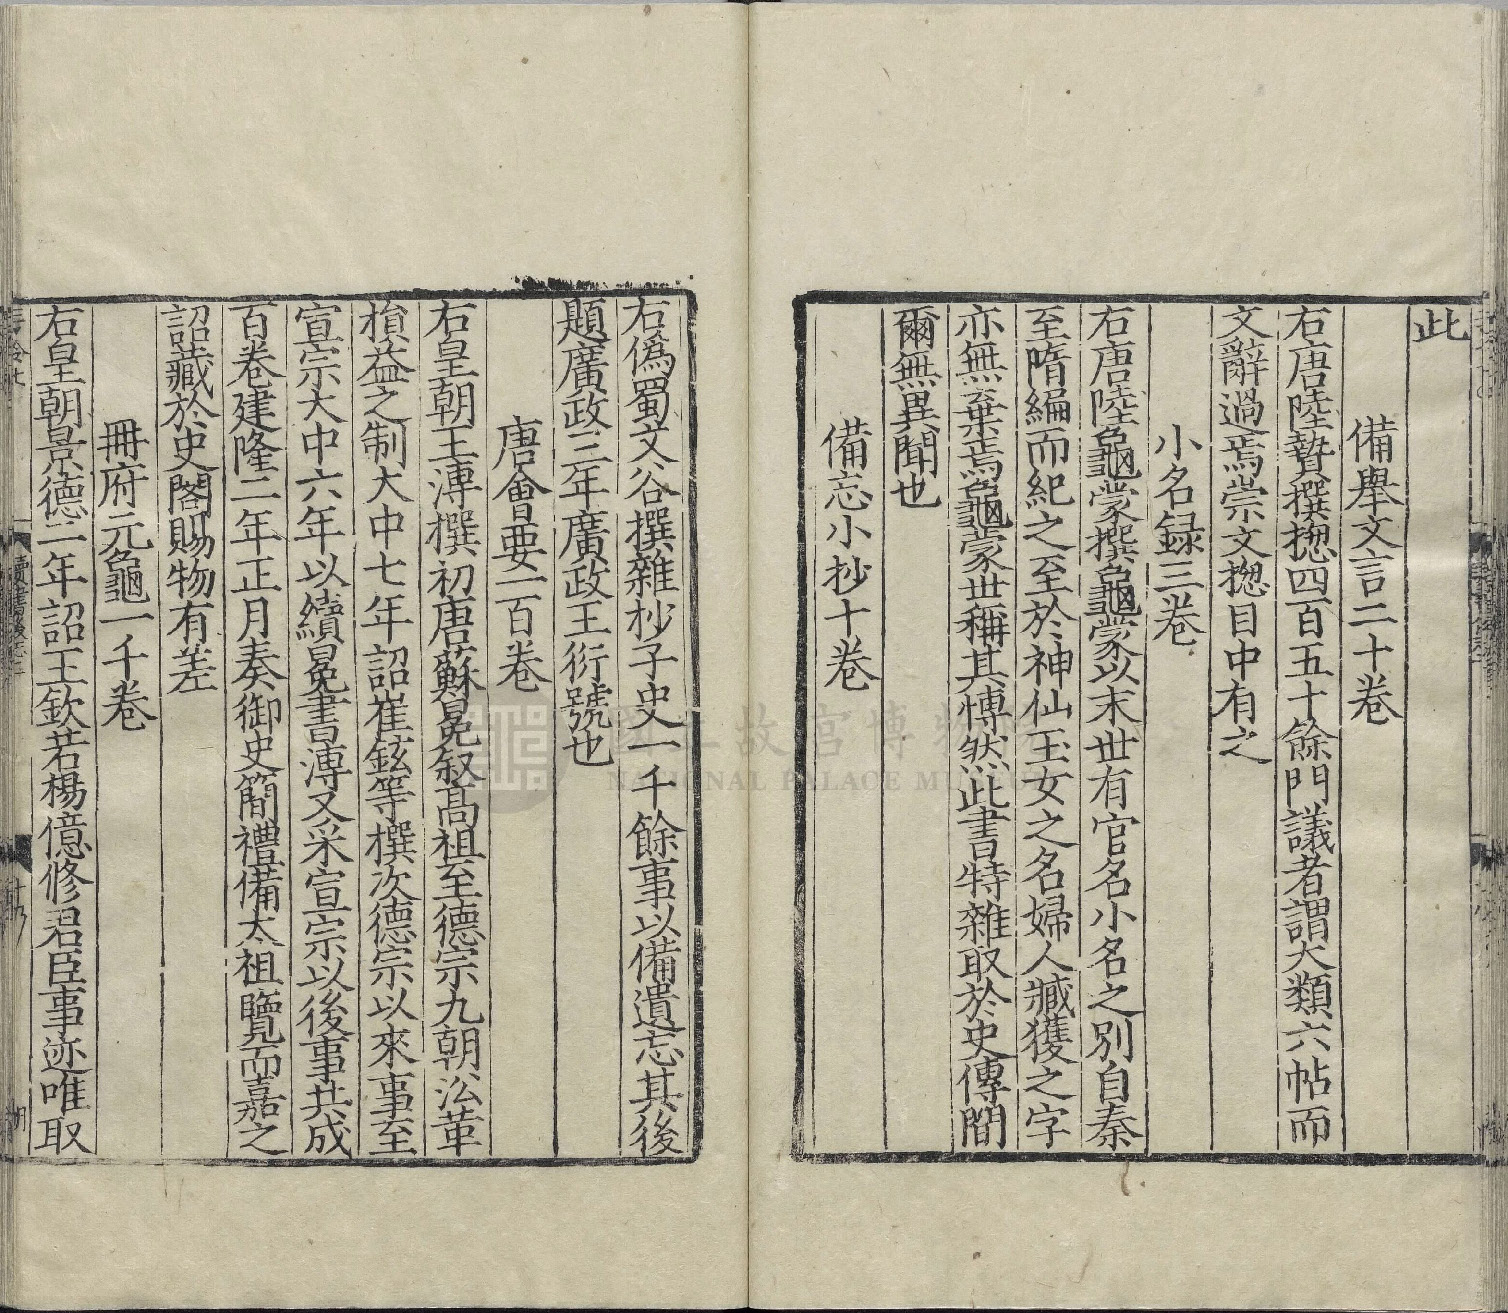 此
備舉文言二十卷
右唐陸贄撰揔四百五十餘門議者謂大類六帖而
文辭過焉崇文揔目中有之
小名録三卷
右唐陸龜蒙撰龜蒙以末世有官名小名之別自秦
至隋編而紀之至於神仙玉女之名婦人臧獲之字
亦無棄焉龜蒙世稱其慱然此書特雜取於史傳間
爾無異聞也
備忘小抄十卷
右僞蜀文谷撰雜抄子史一千餘事以備遺忘其後
題廣政三年廣政王衍號也
唐會要一百卷
右皇朝王溥撰初唐蘇冕叙髙祖至德宗九朝㳂革
損益之制大中七年詔崔鉉等撰次德宗以來事至
宣宗大中六年以續冕書溥又采宣宗以後事共成
百卷建隆二年正月奏御史簡禮備太祖覽而嘉之
詔藏於史閣賜物有差
冊府元龜一千卷
右皇朝景德二年詔王欽若楊億修君臣事迹唯取
國立故宮博物院
NATIONAL PALACE MUSEUM